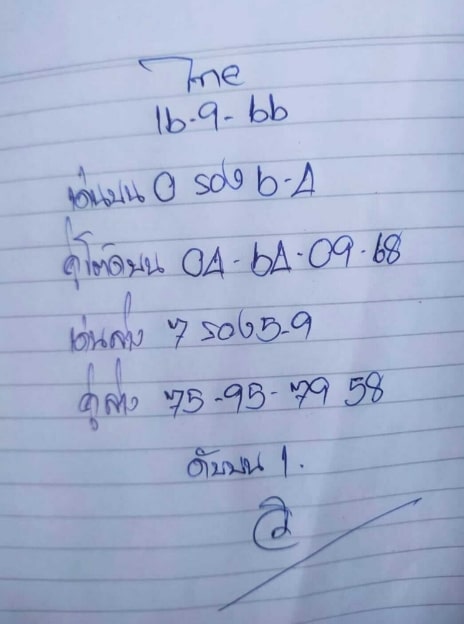 ไทย
16-9-66
เด่นบน 0 รอง 6-4
คู่โต๊ดบน 04-64-09-68
เด่นล่าง 7 รอง 5-9
คู่ล่าง 75-95-79 58
ดับบน 1.